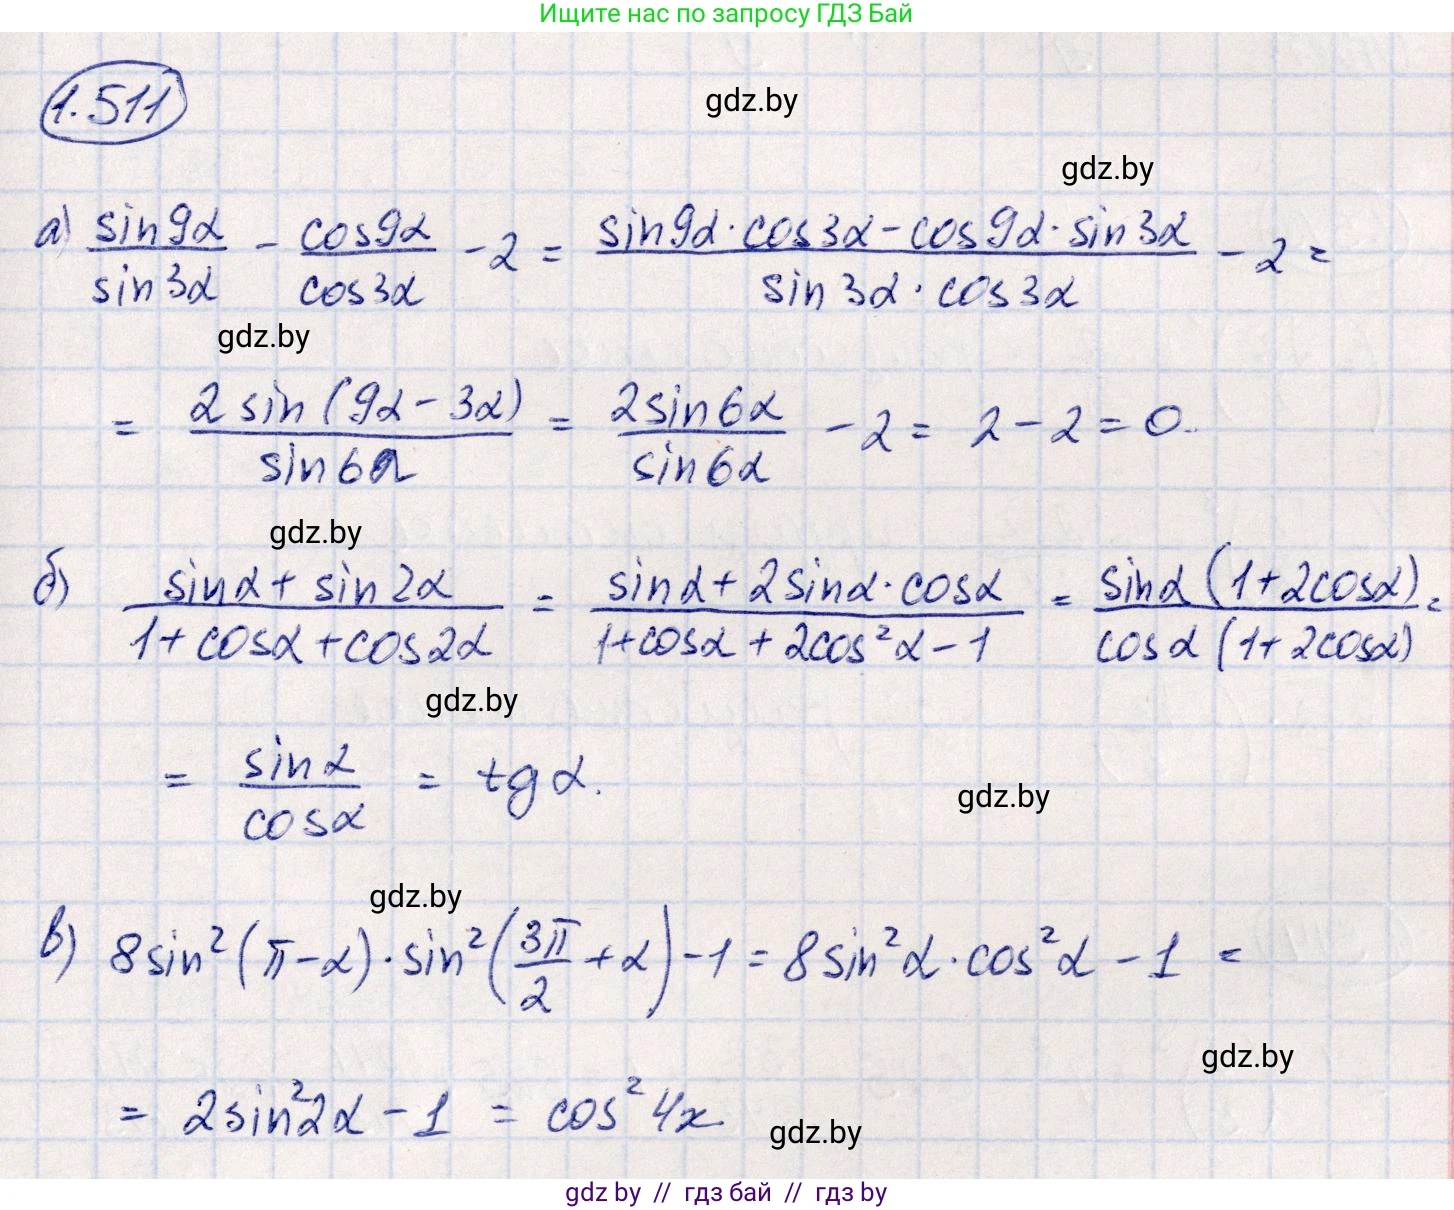 Ищите нас по запросу ГДЗ Бай
1.511
gdz.by
gdz.by
а) sin9α/sin3α - cos9α/cos3α - 2 = (sin9α · cos3α - cos9α · sin3α)/(sin3α · cos3α) - 2 =
gdz.by
= 2 sin(9α - 3α)/sin6α = 2sin6α/sin6α - 2 = 2 - 2 = 0.
gdz.by
б) (sinα + sin2α)/(1 + cosα + cos2α) = (sinα + 2sinα · cosα)/(1 + cosα + 2cos²α - 1) = sinα(1 + 2cosα)/cosα(1 + 2cosα) =
gdz.by
= sinα/cosα = tgα.
gdz.by
gdz.by
в) 8sin²(π - α) · sin²(3π/2 + α) - 1 = 8sin²α · cos²α - 1 =
gdz.by
= 2sin²2α - 1 = cos²4x
gdz.by
gdz by // гдз бай // гдз by